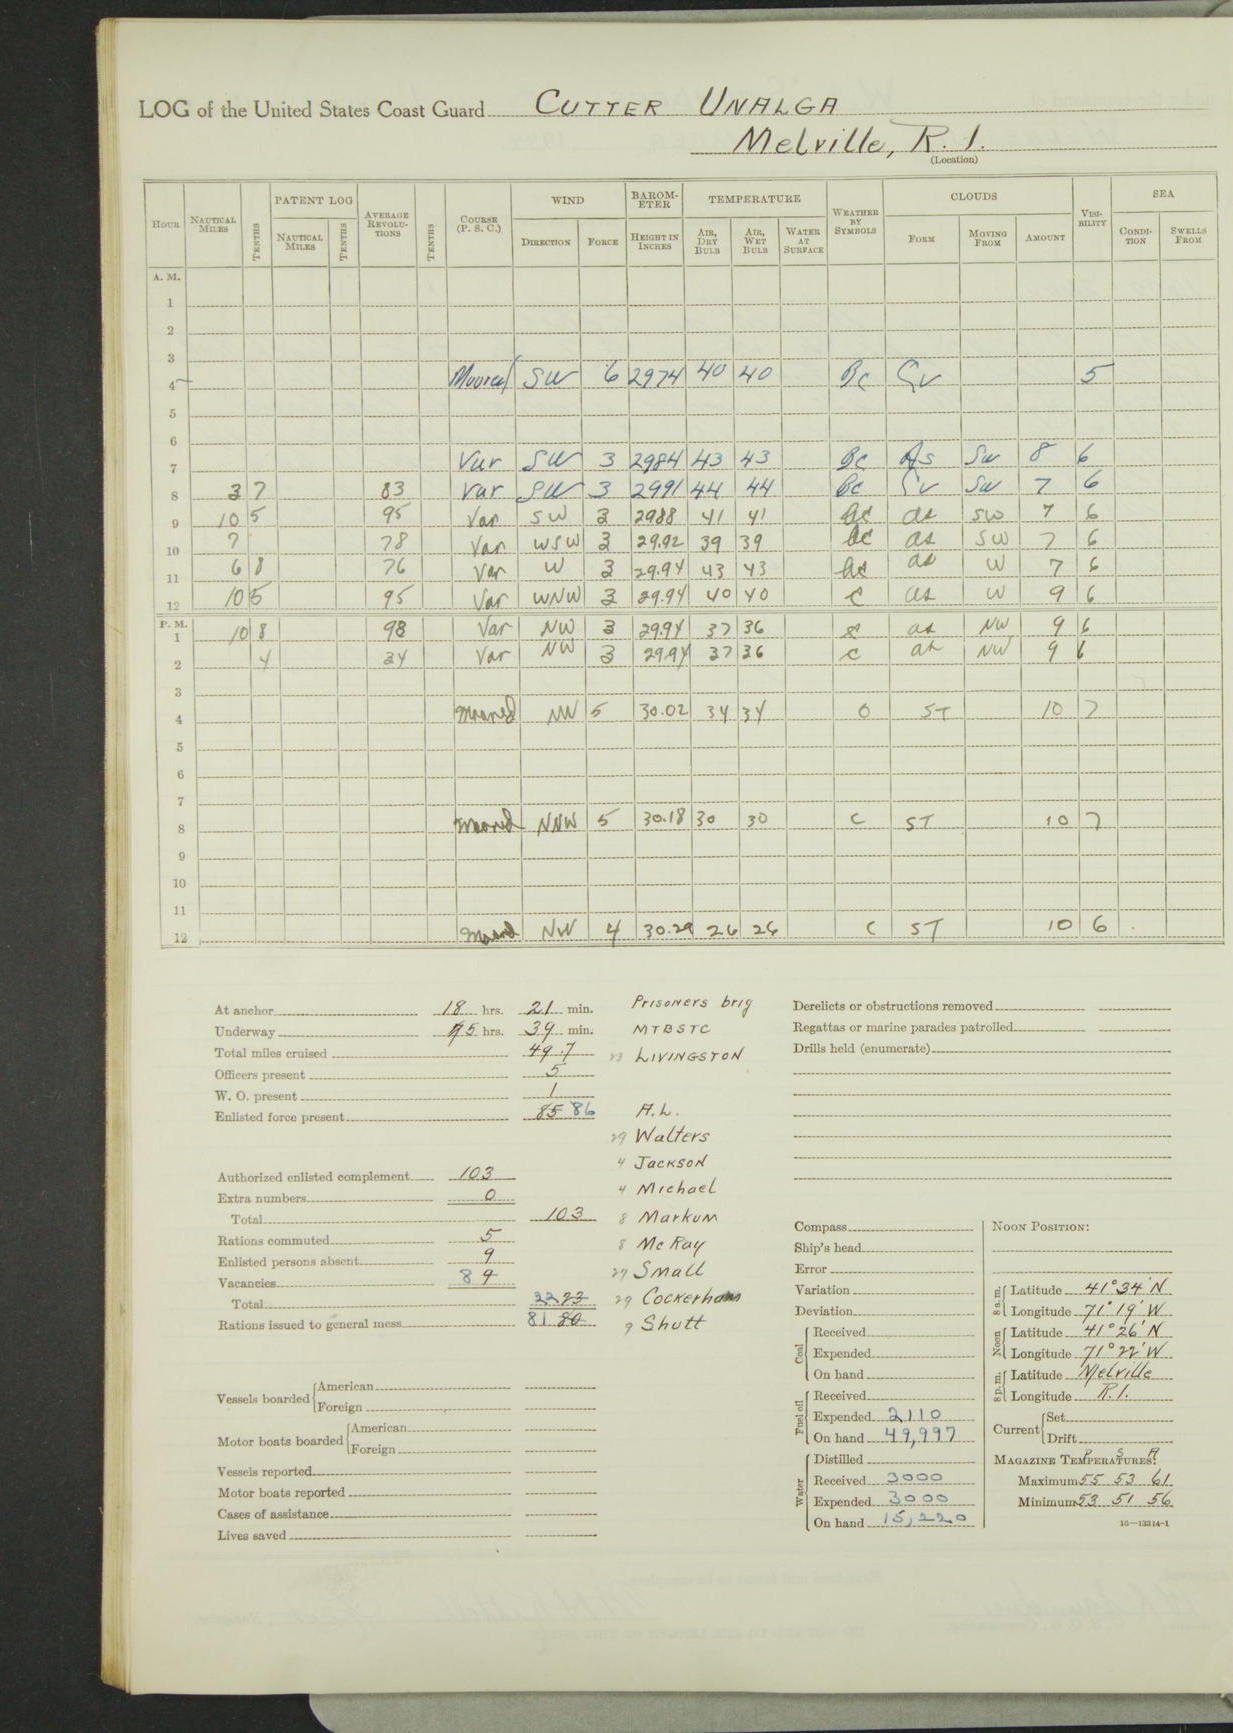 LOG of the United States Coast Guard CUTTER UNALGA
Melville, R. I.
(Location)
HOUR NAUTICAL MILES TENTHS PATENT LOG NAUTICAL MILES TENTHS AVERAGE REVOLUTIONS TENTHS COURSE (P. S. C.) WIND DIRECTION FORCE BAROMETER HEIGHT IN INCHES TEMPERATURE AIR, DRY BULB AIR, WET BULB WATER AT SURFACE WEATHER BY SYMBOLS CLOUDS FORM MOVING FROM AMOUNT VISIBILITY SEA CONDITION SWELLS FROM
A. M.
1
2
3
4 Moored SW 6 2974 40 40 Bc Cu 5
5
6
7 Var SW 3 2984 43 43 Bc As SW 8 6
8 3 7 83 Var SW 3 2991 44 44 Bc Cu SW 7 6
9 10 5 95 Var SW 3 2988 41 41 bc as SW 7 6
10 7 78 Var WSW 3 29.92 39 39 bc as SW 7 6
11 6 8 76 Var W 3 29.94 43 43 bc as W 7 6
12 10 5 95 Var WNW 3 29.94 40 40 c as W 9 6
P. M.
1 10 8 98 Var NW 3 29.94 37 36 c as NW 9 6
2 4 34 Var NW 3 29.94 37 36 c as NW 9 6
3
4 Moored NW 5 30.02 34 34 O ST 10 7
5
6
7
8 Moored NNW 5 30.18 30 30 C ST 10 7
9
10
11
12 Moored NW 4 30.29 26 26 C ST 10 6
At anchor 18 hrs. 21 min.
Underway 5 hrs. 39 min.
Total miles cruised 49.7
Officers present 5
W. O. present 1
Enlisted force present 85 86
Authorized enlisted complement 103
Extra numbers 0
Total 103
Rations commuted 5
Enlisted persons absent 9
Vacancies 8 9
Total 22 23
Rations issued to general mess 81 80
Vessels boarded American
Foreign
Motor boats boarded American
Foreign
Vessels reported
Motor boats reported
Cases of assistance
Lives saved
Prisoners brig
MTBSTC
23 LIVINGSTON
A.L.
29 Walters
4 Jackson
4 Michael
8 Markum
8 McRay
29 Small
29 Cockerham
9 Shutt
Derelicts or obstructions removed
Regattas or marine parades patrolled
Drills held (enumerate)
Compass
Ship's head
Error
Variation
Deviation
Coal
Received
Expended
On hand
Fuel oil
Received
Expended 2110
On hand 49,997
Water
Distilled
Received 3000
Expended 3000
On hand 15,220
NOON POSITION:
8 a.m. Latitude 41° 34' N
Longitude 71° 19' W
Noon Latitude 41° 26' N
Longitude 71° 22' W
8 p.m. Latitude Melville
Longitude R.I.
Current Set
Drift
MAGAZINE TEMPERATURES: P S A
Maximum 55 53 61
Minimum 53 51 56
16—13314-1